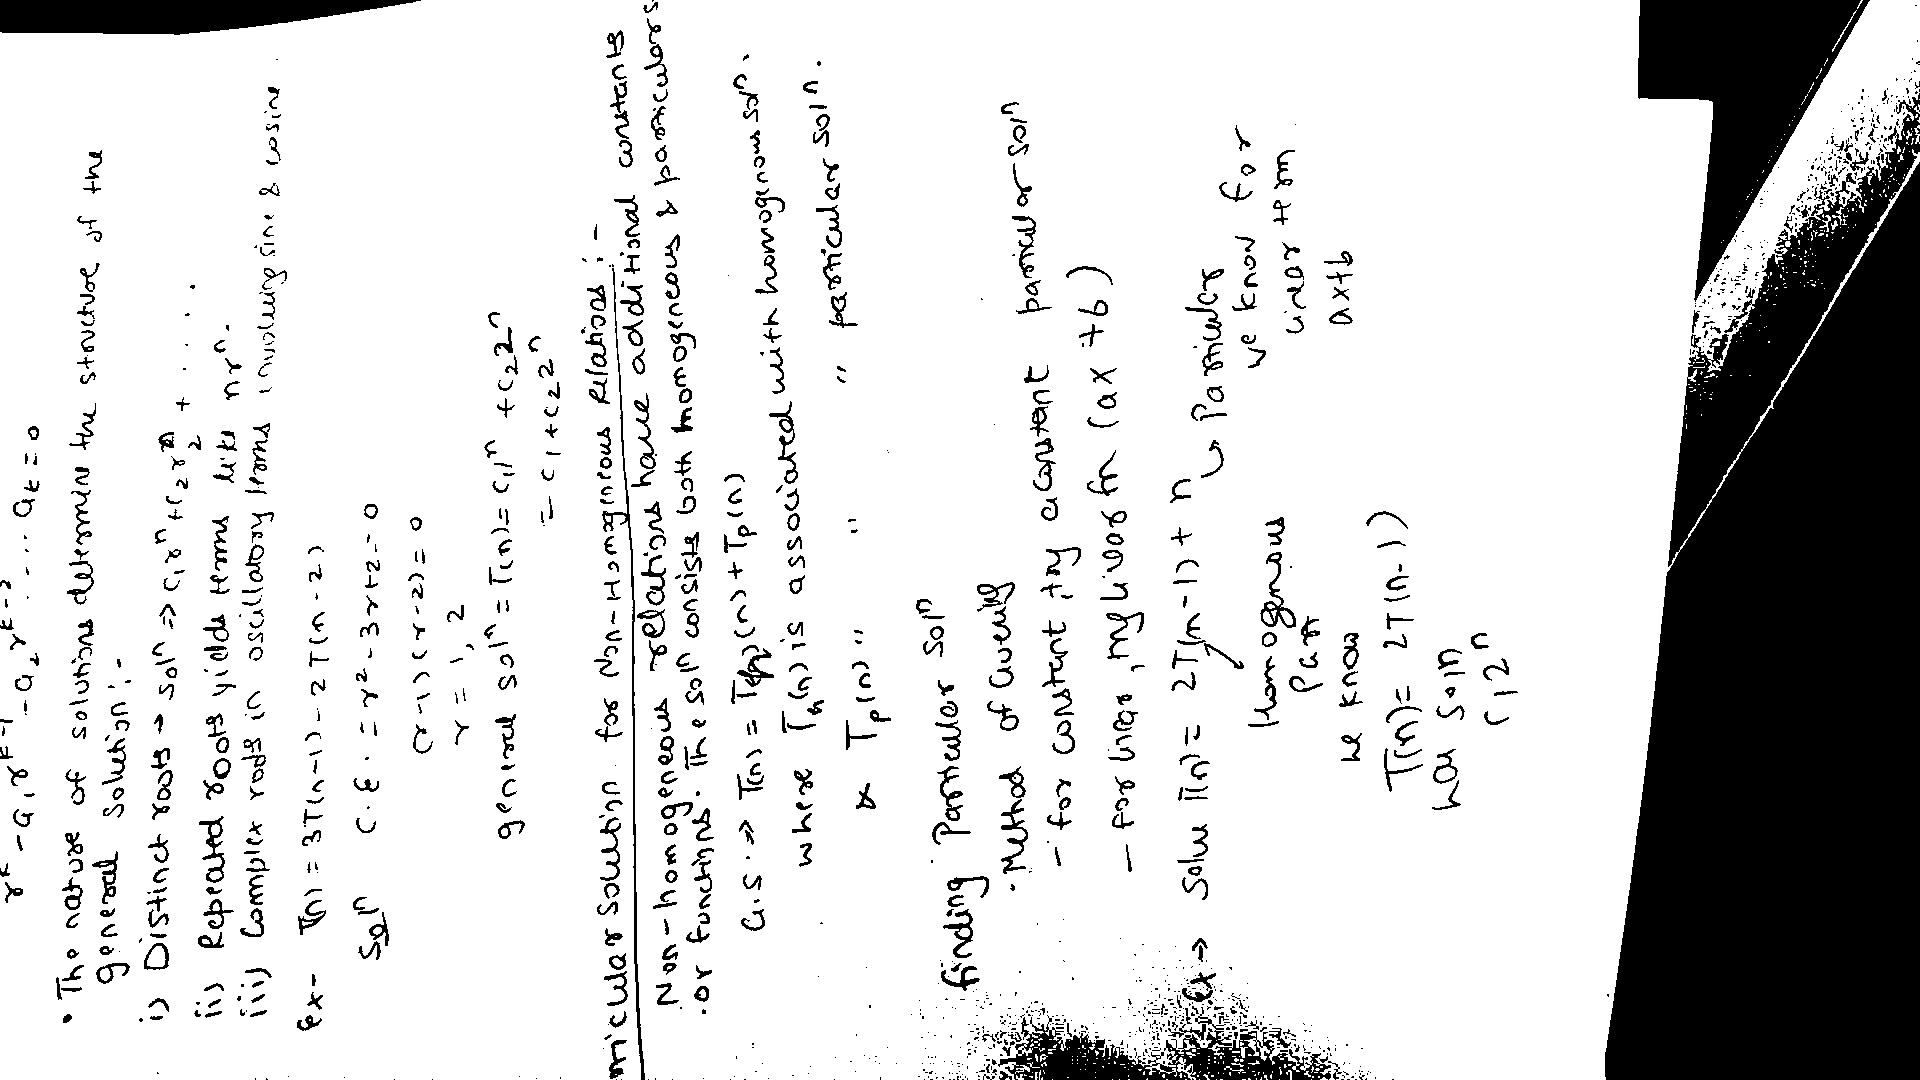 r^k - a₁r^k-1 - a₂r^k-2 .... a_k = 0
• The nature of solutions determine the structure of the
general solution :-
i) Distinct roots → solⁿ ⇒ c₁rⁿ + c₂r₂ⁿ + ....
ii) Repeated roots yields terms like nrⁿ.
iii) Complex roots in oscillatory terms involving sine & cosine.
Ex- T(n) = 3T(n-1) - 2T(n-2)
Solⁿ C.E. = r² - 3r + 2 = 0
(r-1)(r-2) = 0
r = 1, 2
general solⁿ = T(n) = c₁1ⁿ + c₂2ⁿ
= c₁ + c₂2ⁿ
ticular Solution for Non-Homogeneous Relations :-
Non-homogeneous relations have additional constants
. or functions. The solⁿ consists both homogeneous & particulars
G.S. ⇒ T(n) = Th(n) + Tp(n)
where Th(n) is associated with homogenous solⁿ.
& Tp(n) " " " particular solⁿ.
finding Particuler solⁿ
• Method of
- for constant, try a constant particular solⁿ
- for linear, try linear fn (ax + b)
Ex → Solve T(n) = 2T(n-1) + n
↳ Particular
we know for
linear term
ax+b
Homogenous
Part
we know
T(n) = 2T(n-1)
has soln
c₁2ⁿ